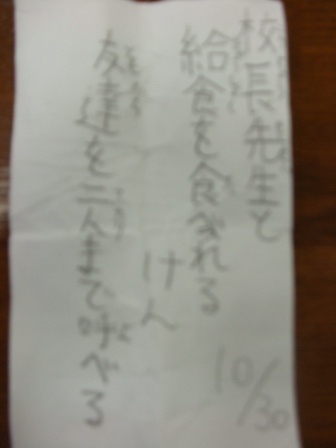 校長先生と
給食を食べれる
けん
友達を二人まで呼べる
10/30